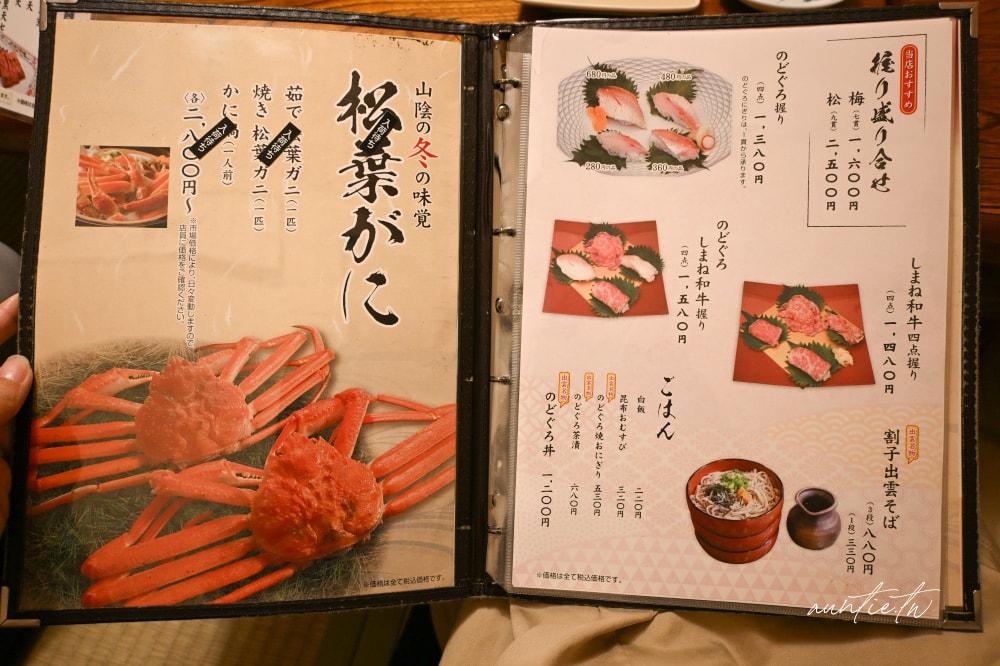 山陰の冬の味覚
松葉がに
入荷待ち
茹で 葉ガニ(一匹)
入荷待ち
焼き 松葉ガニ(一匹)
かに (一人前)
入荷待ち
(各)二、八〇〇円〜
※市場価格により、日々変動しますので
店員に価格をご確認ください。
※価格は全て税込価格です。
当店おすすめ
握り盛り合せ
梅(七貫)一、六〇〇円
松(九貫)二、五〇〇円
のどぐろ握り
(四点)一、三八〇円
のどぐろにぎりは、一貫から承ります。
680円
480円
280円
360円
のどぐろ
しまね和牛握り
(四点)一、五八〇円
しまね和牛四点握り
(四点)一、四八〇円
ごはん
白飯 二二〇円
昆布おむすび 三二〇円
出雲名物
のどぐろ焼おにぎり 五三〇円
出雲名物
のどぐろ茶漬 六八〇円
出雲名物
のどぐろ丼 一、二〇〇円
出雲名物
割子出雲そば
(3段)八八〇円
(1段)三三〇円
※価格は全て税込価格です。
auntie.tw